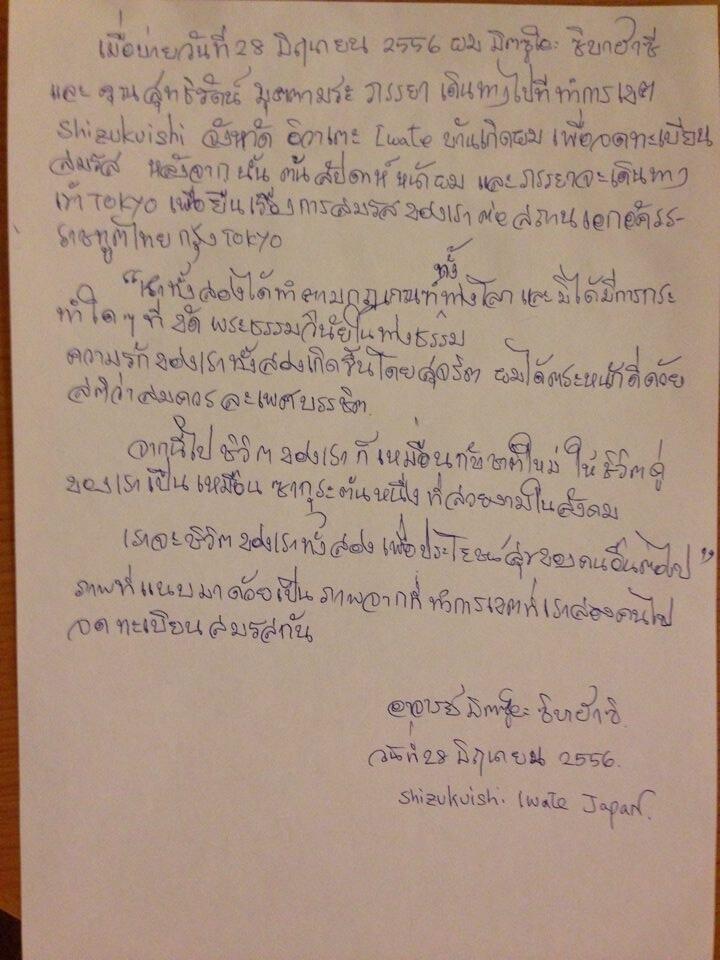 เมื่อบ่ายวันที่ 28 มิถุนายน 2556 ผม มิตซูโอะ ชิบาฮาชี
และ คุณสุทธิรัตน์ มุตตามระ ภรรยา เดินทางไปที่ทำการเขต
Shizukuishi จังหวัด อิวาเตะ Iwate บ้านเกิดผม เพื่อจดทะเบียน
สมรส หลังจากนั้น ต้นสัปดาห์หน้าผม และภรรยาจะเดินทาง
เข้า TOKYO เพื่อยื่นเรื่องการสมรสของเราต่อ สถานเอกอัครร-
ราชทูตไทย กรุง TOKYO
"เราทั้งสองได้ทำตามกฎเกณฑ์ทั้งทางโลก และมิได้มีการกระ
ทำใดๆ ที่ ขัด พระธรรมวินัยในทางธรรม
ความรักของเราทั้งสองเกิดขึ้นโดยสุจริต ผมได้ตระหนักดีด้วย
สติว่าสมควร ละเพศบรรชิต
จากนี้ไป ชีวิตของเรา ก็เหมือนกับชาติใหม่ ให้ชีวิตคู่
ของเราเป็นเหมือน ซากุระต้นหนึ่ง ที่สวยงามในสังคม
เราจะชีวิตของเราทั้งสอง เพื่อประโยชน์สุขของคนอื่นต่อไป"
ภาพที่แนบมาด้วยเป็น ภาพจากที่ทำการเขตที่เราสองคนไป
จดทะเบียนสมรสกัน
อาจารย์ มิตซูโอะ ชิบาฮาชิ
วันที่ 28 มิถุนายน 2556.
Shizukuishi. Iwate Japan.